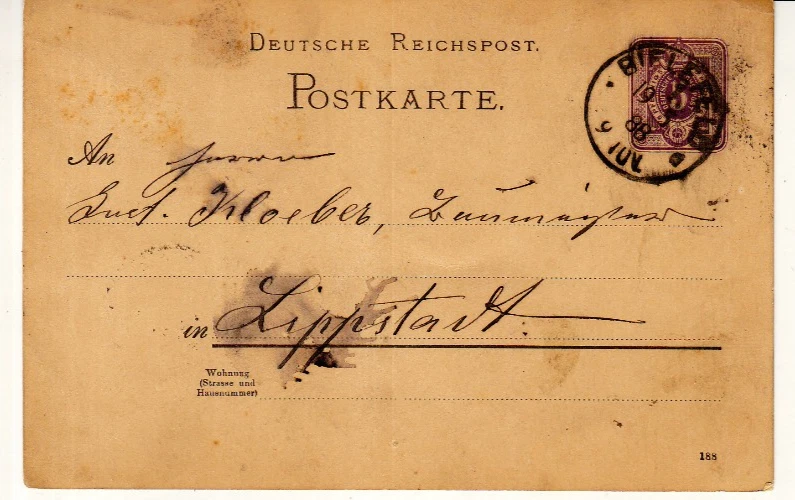 DEUTSCHE REICHSPOST.
POSTKARTE.
BIELEFELD
19
88
9 10V.
5
An Herrn
Kloeber, Baumeister
in Lippstadt.
Wohnung
(Strasse und
Hausnummer)
188